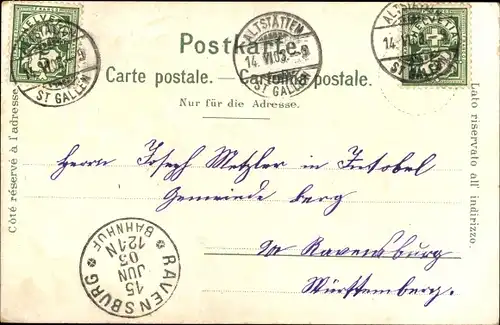 HELVETIA
ALTSTÄTTEN
14. VI. 05.
ST GALLEN
ALTSTÄTTEN
14. VI. 05.
ST GALLEN
HELVETIA
ALTSTÄTTEN
14. VI. 05.
ST GALLEN
Postkarte.
Carte postale. — Cartolina postale.
Nur für die Adresse.
Côté réservé à l'adresse.
Lato riservato all' indirizzo.
Herrn Joseph Metzler in Intobel
Gemeinde Berg
Ravensburg
Württemberg.
RAVENSBURG
BAHNHOF
15
JUN
05
12-1N